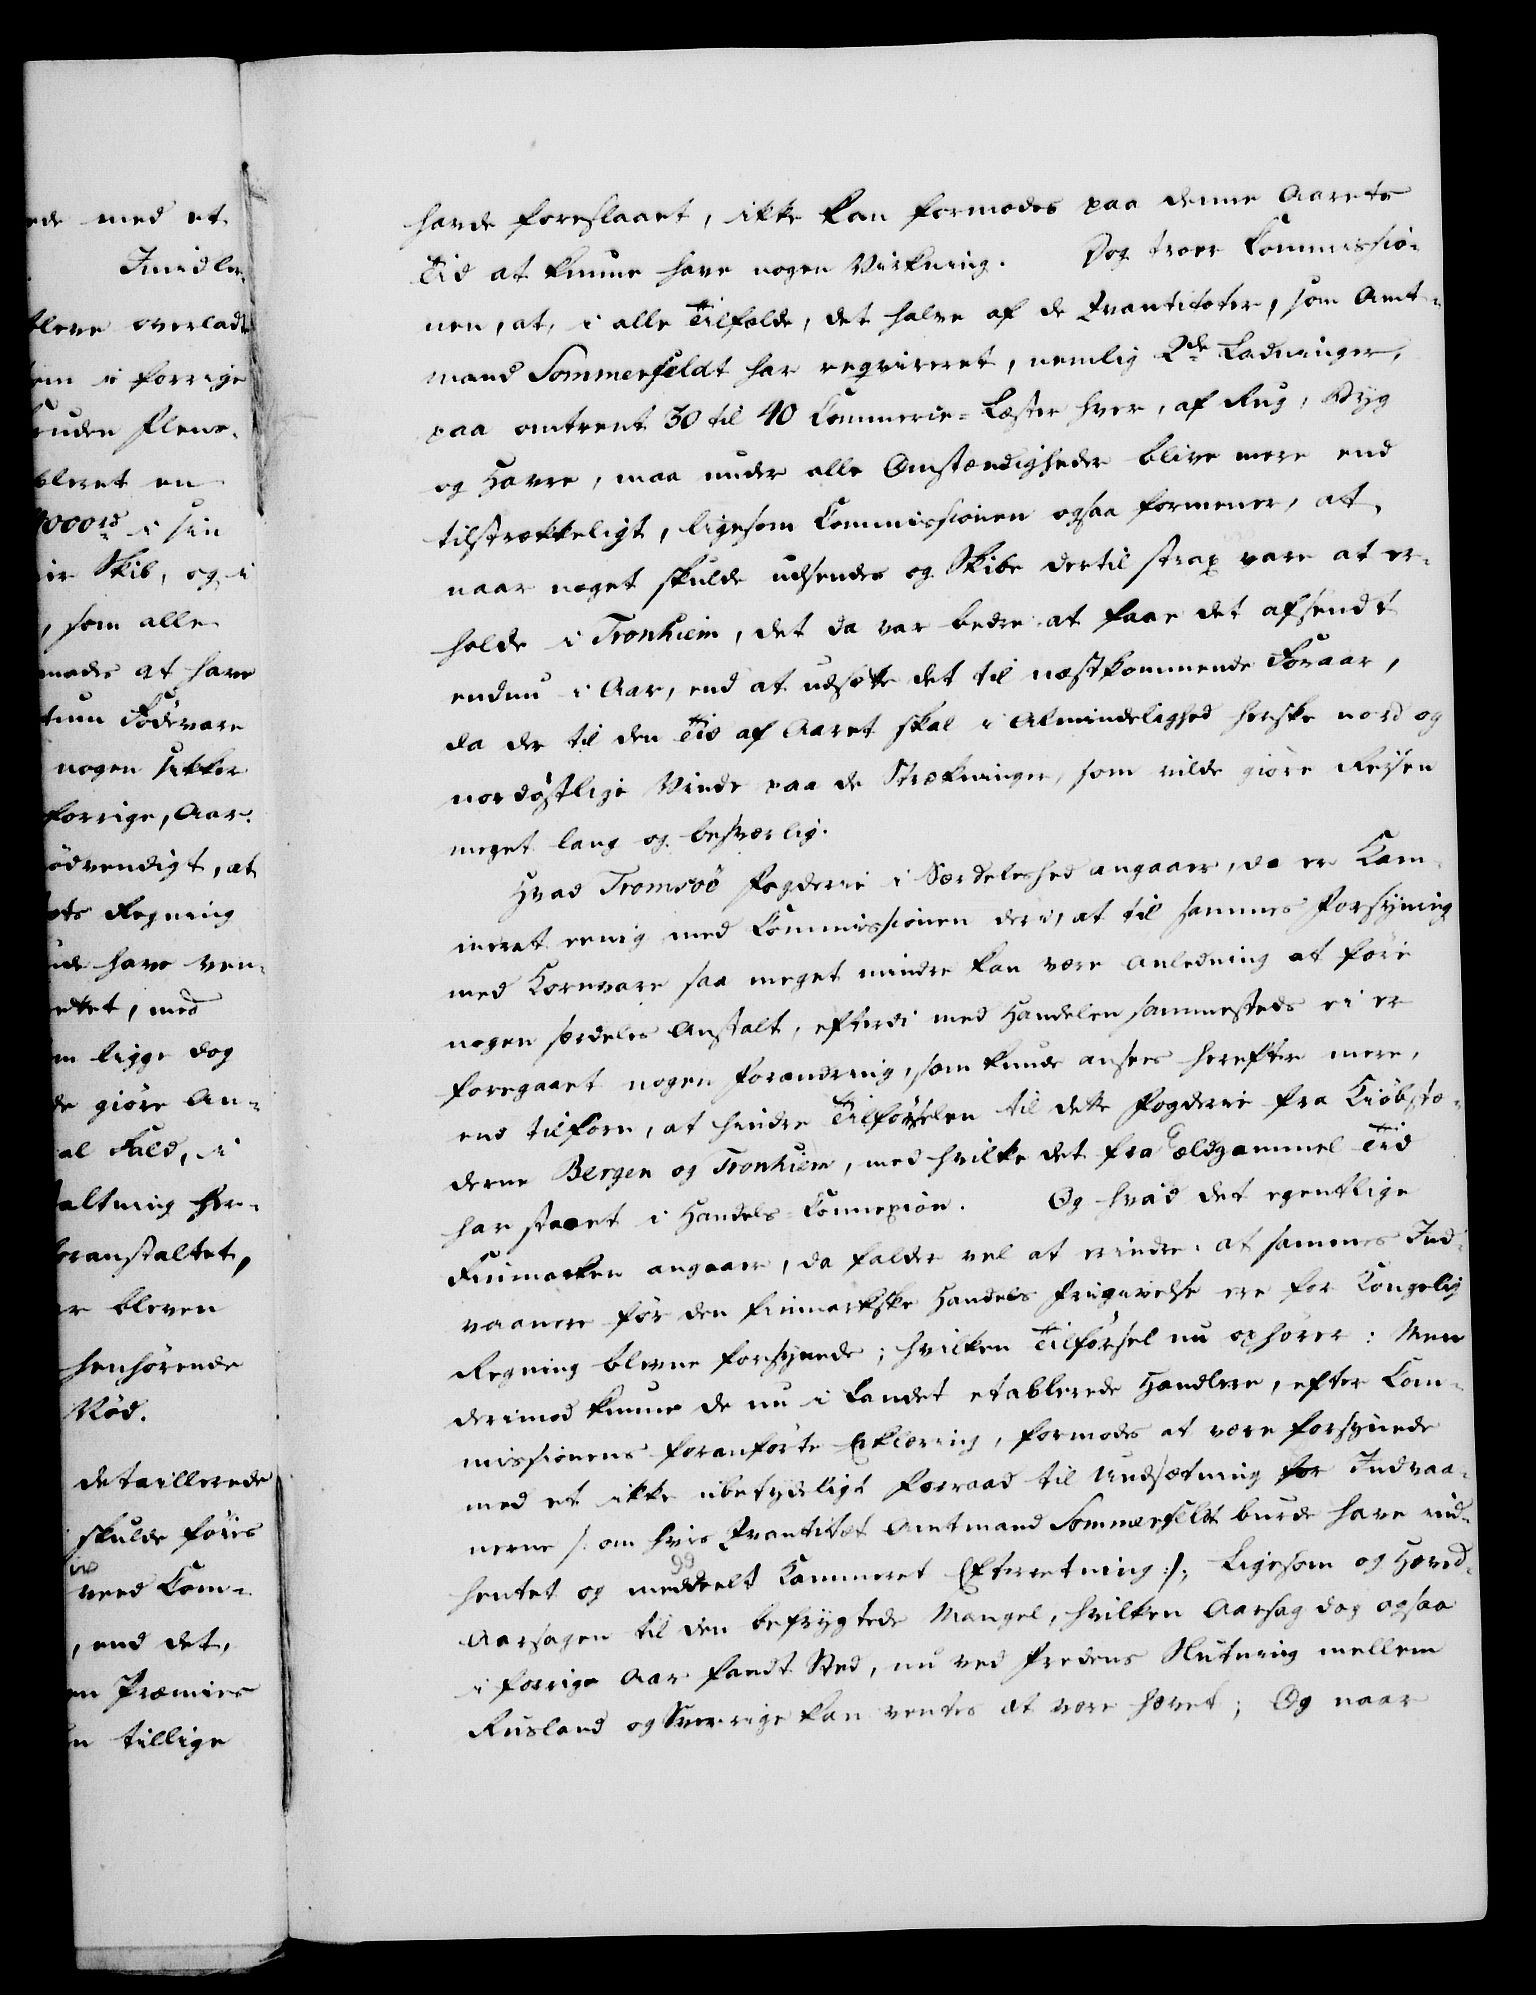 ede med et
Imidler-
bleve overladt
em i forrige
enden Flens-
bleret en
000rd i sin
ir Skib, og i
, som alle
modes at have
tum Fødevare
nogen sikker
forrige, Aar.
ødvendigt, at
ots Regning
ide have ven-
ettet, med
m ligge dog
de giøre An-
al Fald, i
altning her-
oranstaltet,
er bleven
henhørende
Nød.
detaillerede
skulde føres
veed Com-
, end det,
en Præmies
n tillige
havde foreslaaet, ikke kan formodes paa denne Aarets
Tid at kunne have nogen Virkning. Dog troer Commissio-
nen, at, i alle Tilfælde, det halve af de Qvantiteter, som Amt-
mand Sommerfeldt har reqvireret, nemlig 2de Ladninger,
paa omtrent 30 til 40 Commerce-Læster hver, af Rug, Byg
og Havre, maa under alle Omstændigheder blive mere end
tilstrækkeligt, ligesom Commissionen ogsaa formener, at,
naar noget skulde udsendes og Skibe dertil strax vare at er-
holde i Tronhiem, det da var bedre at faae det afsendt
endnu i Aar, end at udsætte det til næstkommende Foraar,
da der til den Tid af Aaret skal i Almindelighed herske nord og
nordøstlige Vinde paa de Strækninger, som vilde giøre Reisen
meget lang og besværlig.
Hvad Tromsøe Fogderie i Særdeleshed angaaer, da er Kam-
meret eenig med Commissionen deri, at til sammes Forsyning
med Kornvare saa meget mindre kan være Anledning at føie
nogen særdeles Anstalt, efterdi med Handelen sammesteds ei er
foregaaet nogen Forandring, som kunde ansees herefter mere,
end tilforn, at hindre Tilførselen til dette Fogderie fra Kiøbstæ-
derne Bergen og Tronhiem, med hvilke det fra ældgammel Tid
har staaet i Handels-Connexion. Og hvad det egentlige
Finmarken angaaer, da falder vel at erindre: at sammes Ind-
vaanere før den finmarkske Handels Frigivelse ere for Kongelig
Regning blevne forsynede; hvilken Tilførsel nu ophører: Men
derimod kunne de nu i Landet etablerede Handlere, efter Com-
missionens foranførte Erklæring, formodes at være forsynede
med et ikke ubetydeligt Forraad til Undsætning for Indvaa-
nerne /: om hvis Qvantitet Amtmand Sommerfeldt burde have ind-
hentet og meddeelt Kammeret Efterretning :/; Ligesom og Hoved-
Aarsagen til den befrygtede Mangel, hvilken Aarsag dog ogsaa
i forrige Aar fandt Sted, nu ved Fredens Slutning mellem
Rusland og Sverrige kan ventes at være hævet; Og naar